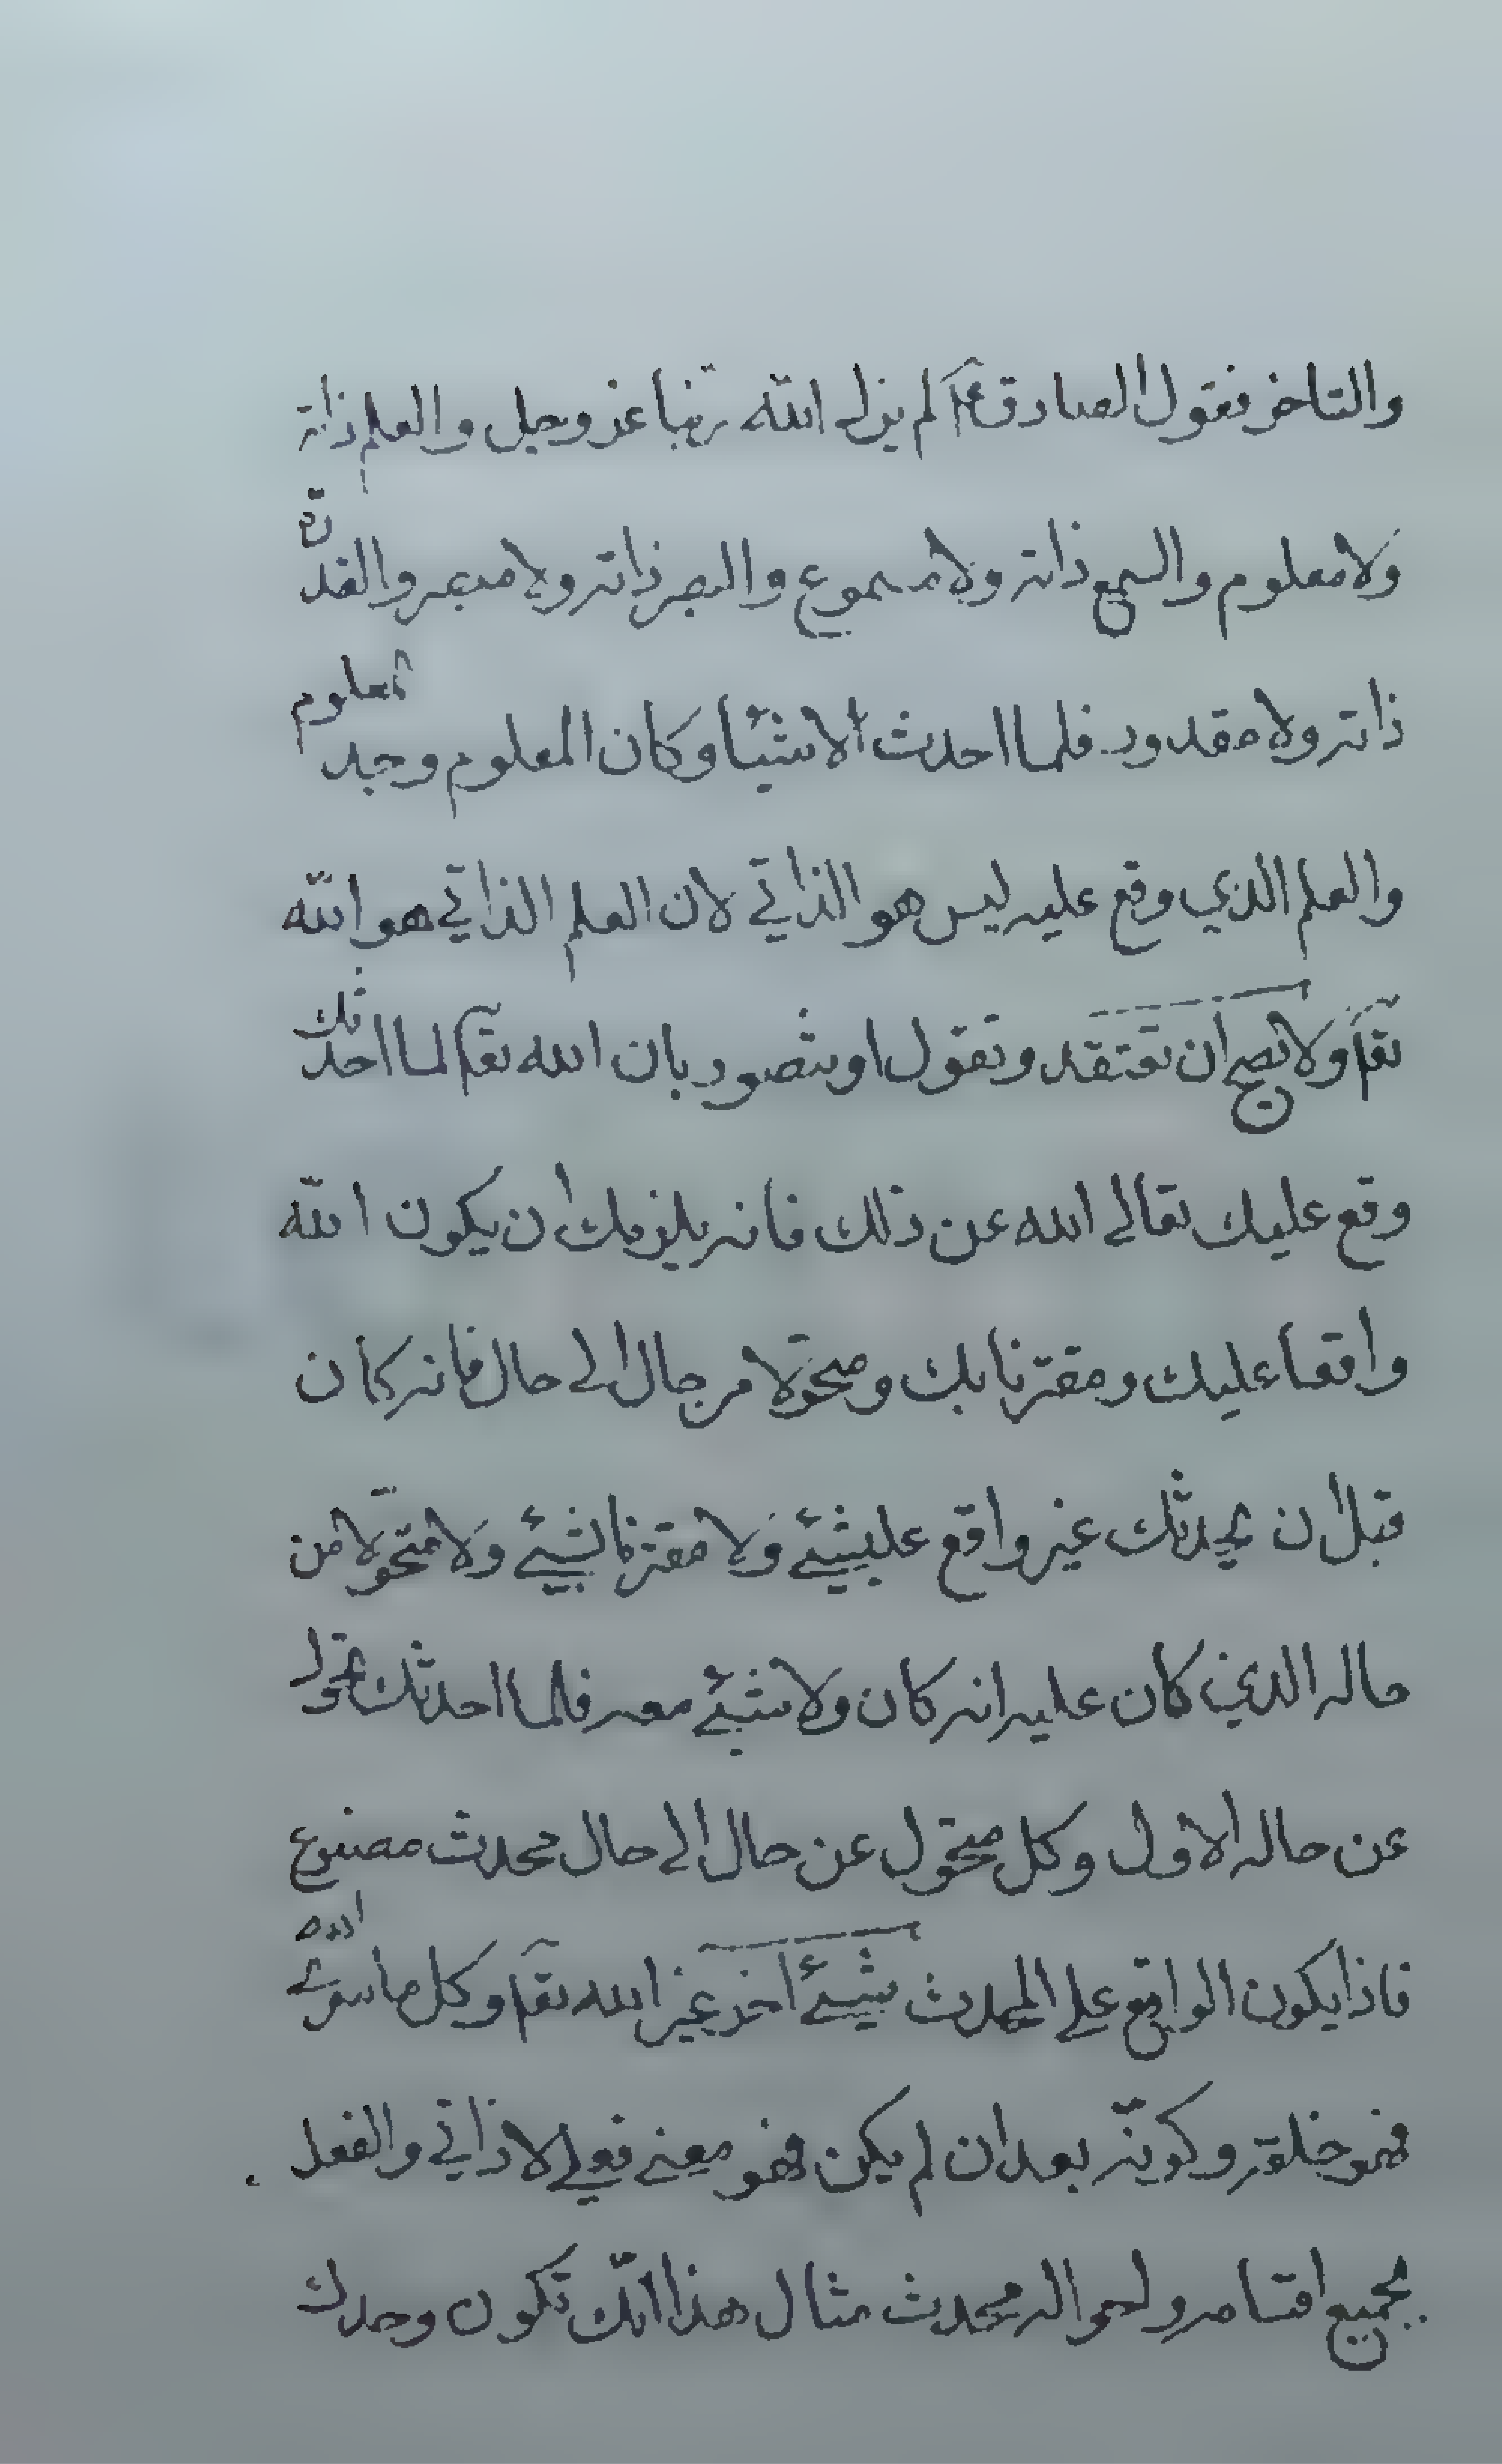 والتاخر فقول الصادق ع لم يزل الله ربنا عز وجل والعلم ذاته
ولا معلوم والسمع ذاته ولا مسموع والبصر ذاته ولا مبصر والقدرة
ذاته ولا مقدور فلما احدث الاشيأ وكان المعلوم وجد معلوم
والعلم الذي وقع عليه ليس هو الذاتي لان العلم الذاتي هو الله
تعا ولا يصح ان تعتقد وتقول او تتصور بان الله تعا لما احدثك
وقع عليك تعالى الله عن ذلك فانه يلزمك ان يكون الله
واقعا عليك ومقترنا بك ومتحوّلا من حال الى حال فانه كان
قبل ان يحدثك غير واقع على شيئ ولا مقترنا بشيئ ولا متحوّلا من
حاله الذي كان عليه انه كان ولا شيئ معه فلما احدثك تحول
عن حاله الاول وكل متحول عن حال الى حال محدث مصنوع
فاذا يكون الواقع على المحدث شيئ اخر غير الله تعا وكل ما سوى الله
فهو خلقه وكونه بعد ان لم يكن فهو معنى فعلي لا ذاتي والفعل
بجميع اقسامه واحواله محدث مثال هذا انّك تكون وحدك